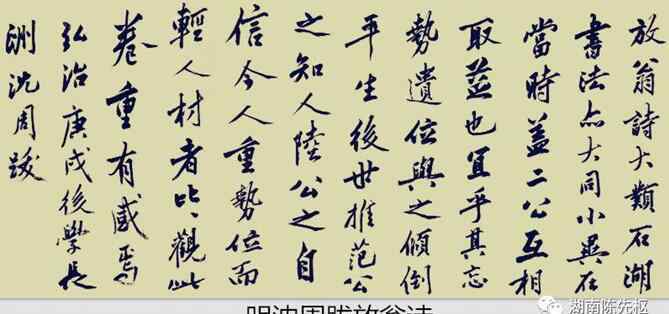 放翁詩大類石湖
書法亦大同小異在
當時蓋二公互相
取益也宜乎其忘
勢遺位與之傾倒
平生後世推范公
之知人陸公之自
信今人重勢位而
輕人材者比比觀此
卷重有感焉
弘治庚戌後學長
洲沈周跋
湖南陈先枢